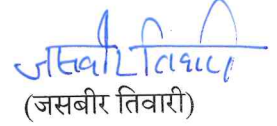 जसबीर तिवारी
(जसबीर तिवारी)